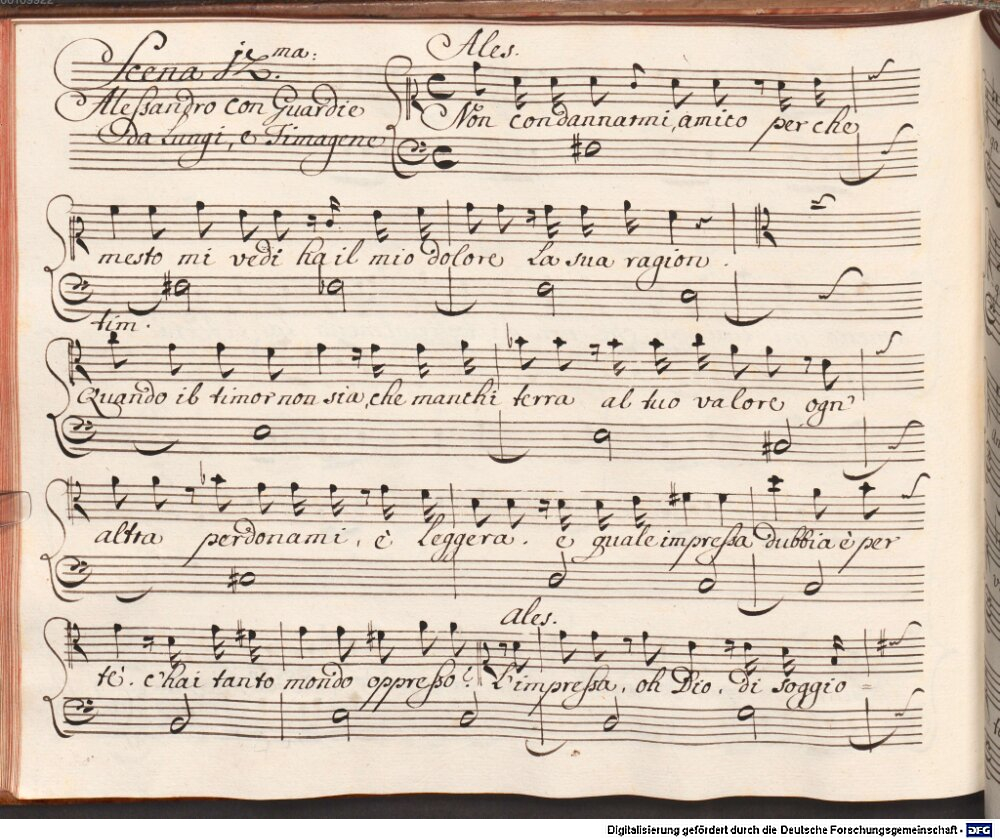 00109922
Scena 12.ma:
Alessandro con Guardie
Da Lungi, e Timagene
Ales.
Non condannarmi, amico perche
mesto mi vedi ha il mio dolore la sua ragion.
tim.
Quando il timor non sia, che manchi terra al tuo valore ogn'
altra perdonami, è leggera. e quale impressa dubbia è per
tè. c'hai tanto mondo oppresso?
Ales.
L'impressa, oh Dio, di soggio =
Digitalisierung gefördert durch die Deutsche Forschungsgemeinschaft - DFG